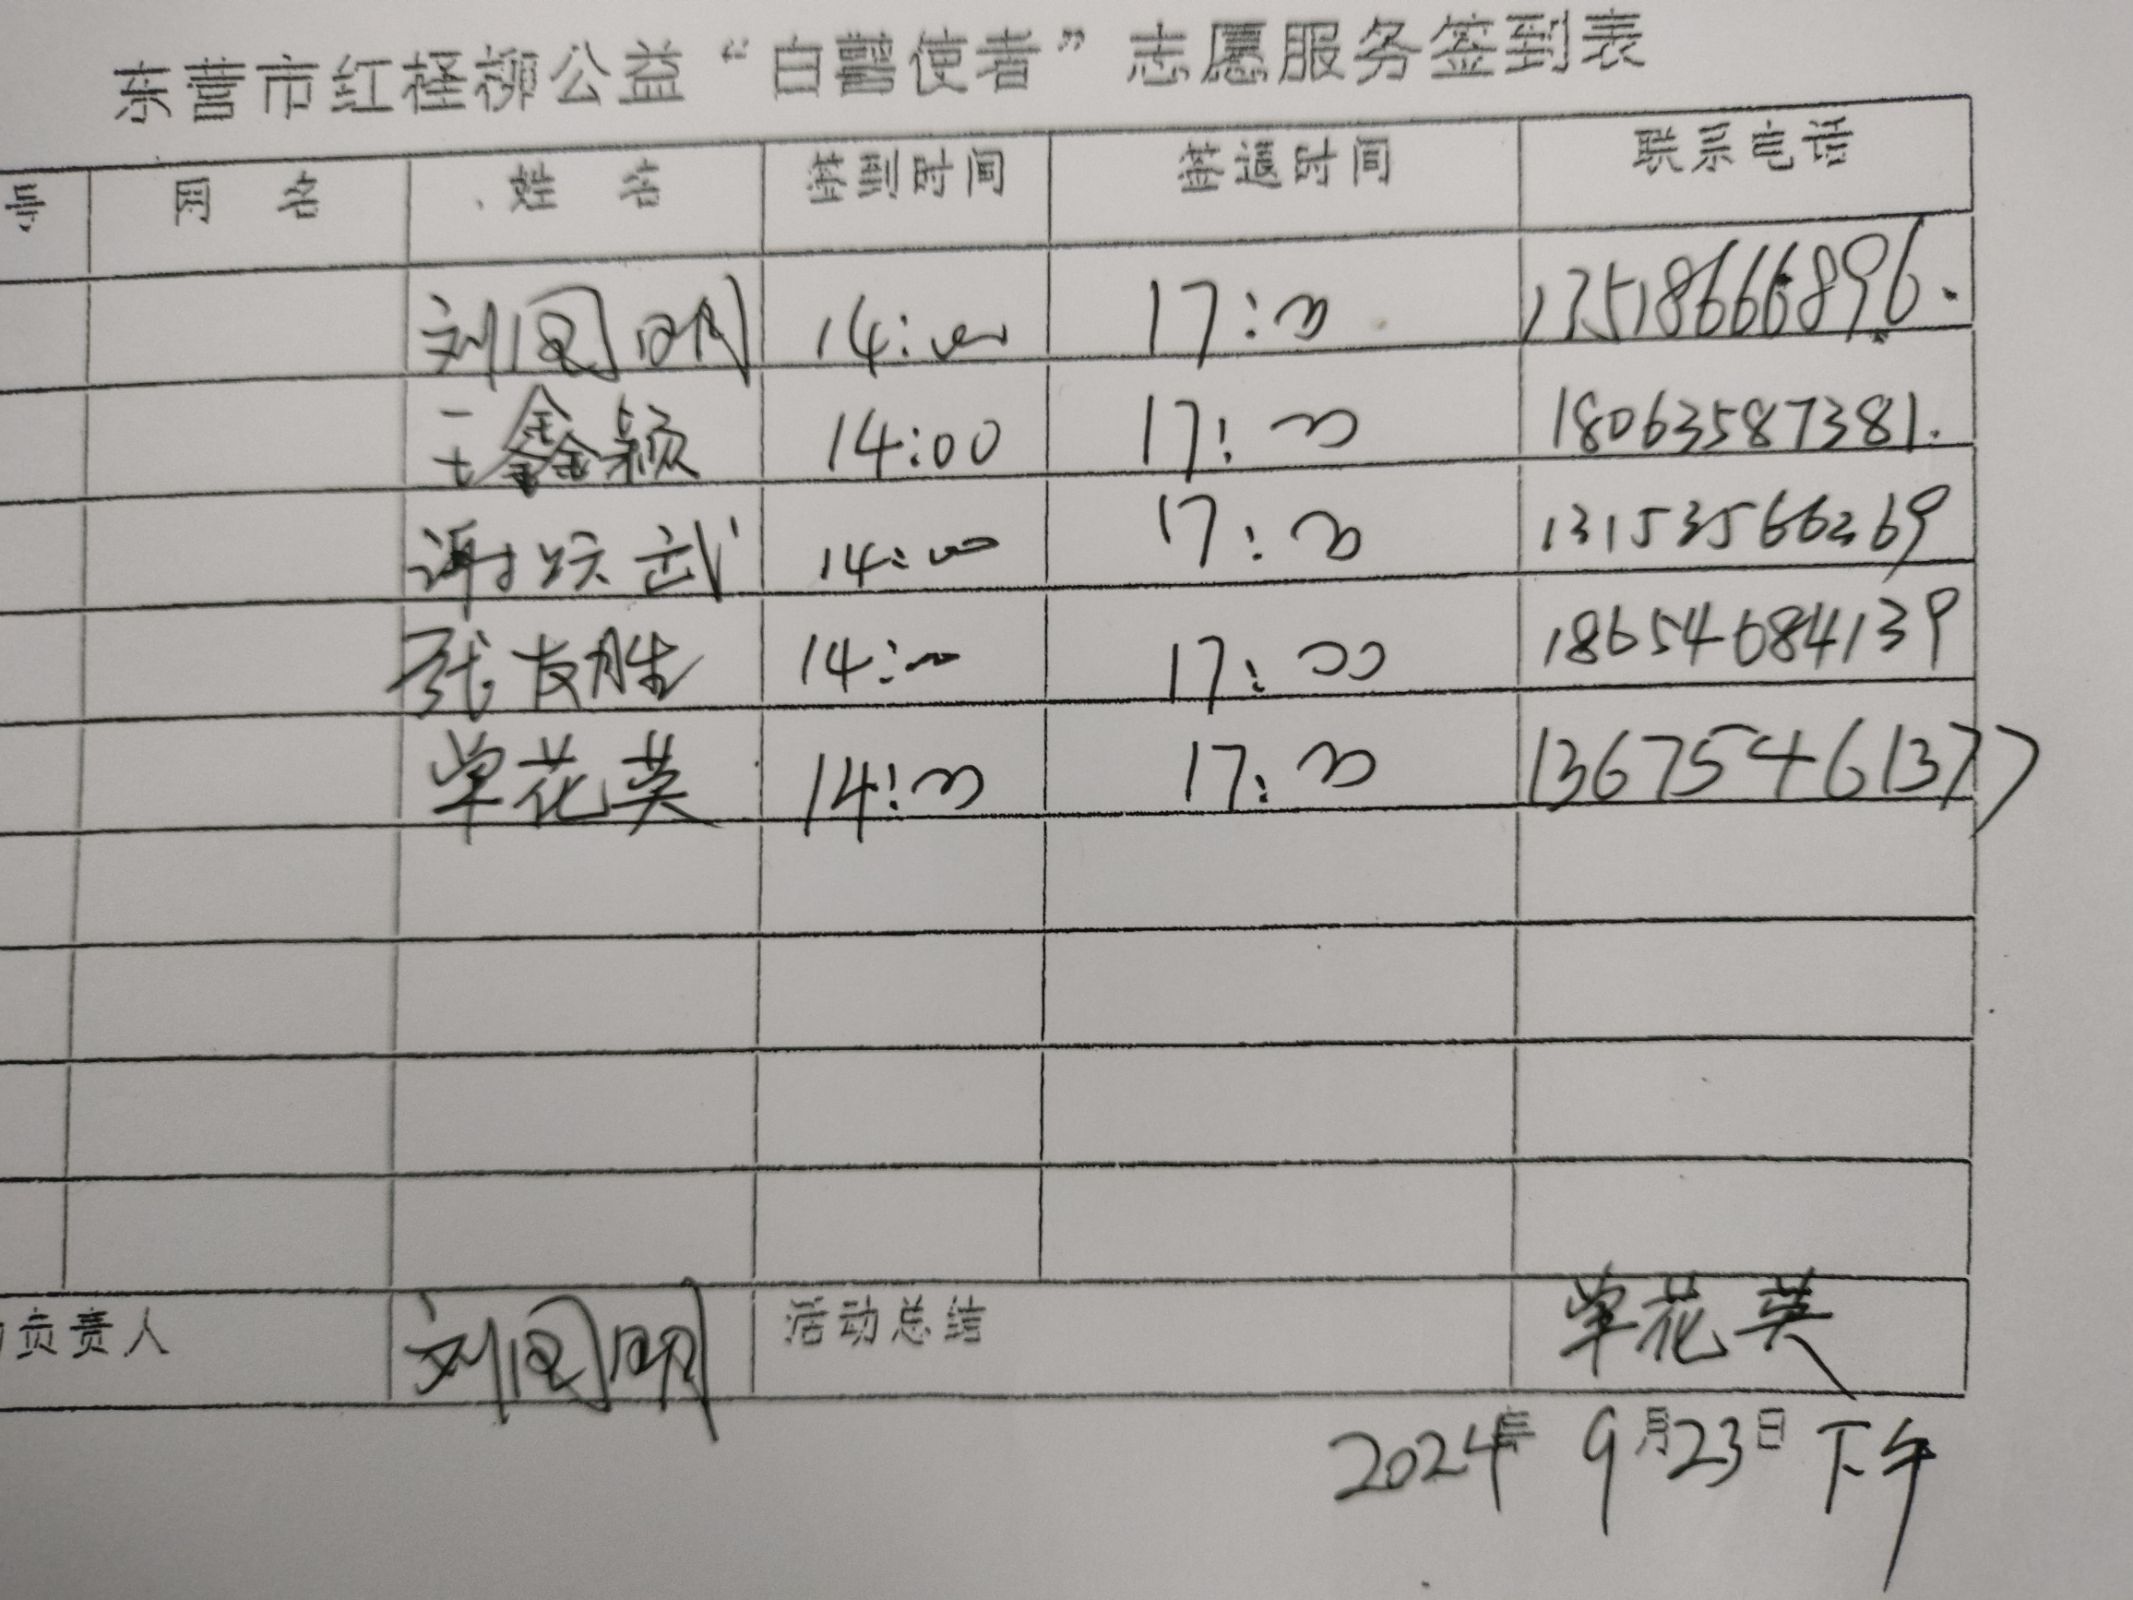 东营市红柽柳公益“白鹭使者”志愿服务签到表
号 网名 姓名 签到时间 签退时间 联系电话
刘国明 14:00 17:00 13518666896.
王鑫颖 14:00 17:00 18063587381.
谢跃武 14:00 17:00 13153566269
张友胜 14:00 17:00 18654684139
单花英 14:00 17:00 13675461377
负责人 刘国明 活动总结 单花英
2024年 9月23日 下午